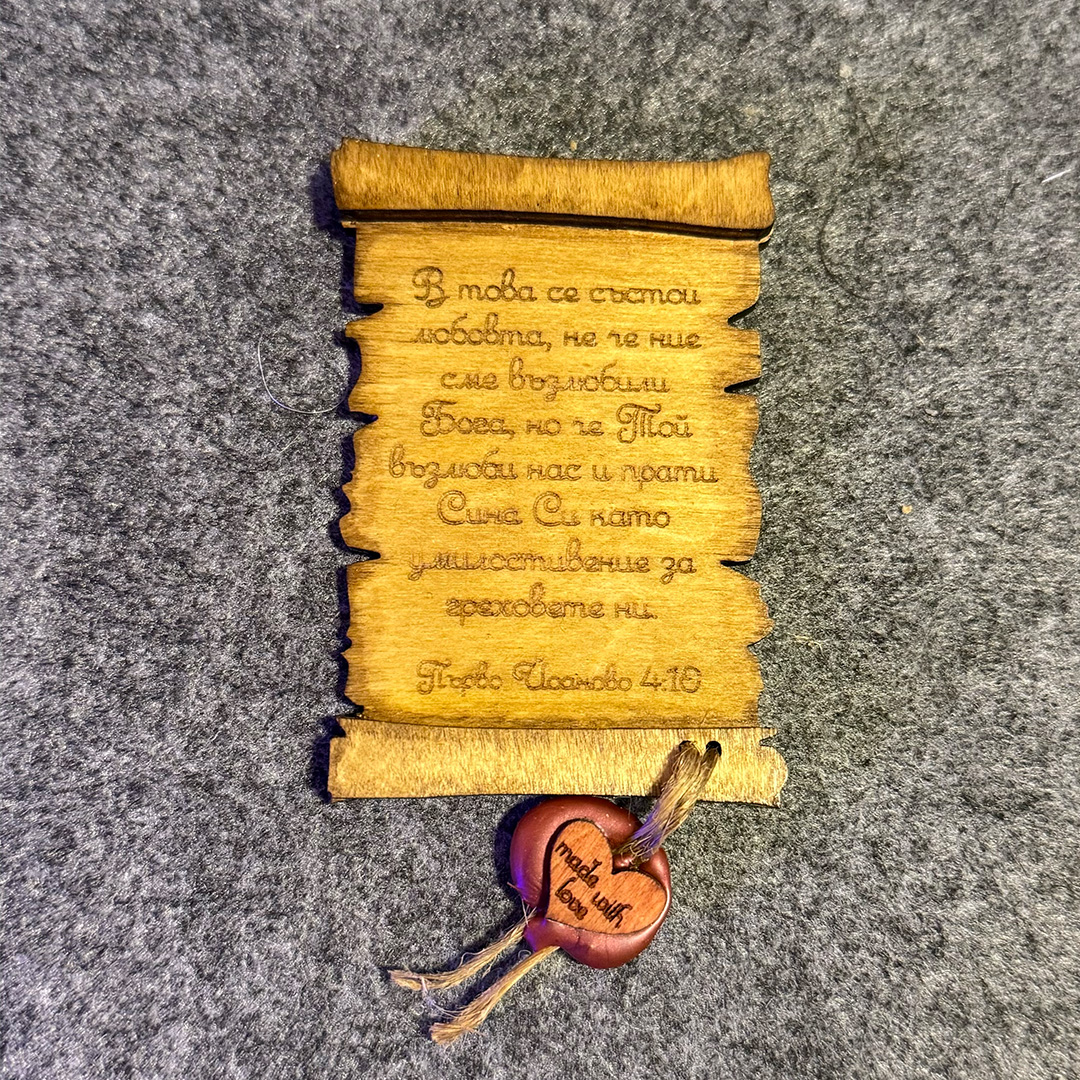 В това се състои
любовта, не че ние
сме възлюбили
Бога, но че Той
възлюби нас и прати
Сина Си като
умилостивение за
греховете ни.
Първо Йоаново 4:10
made with
love